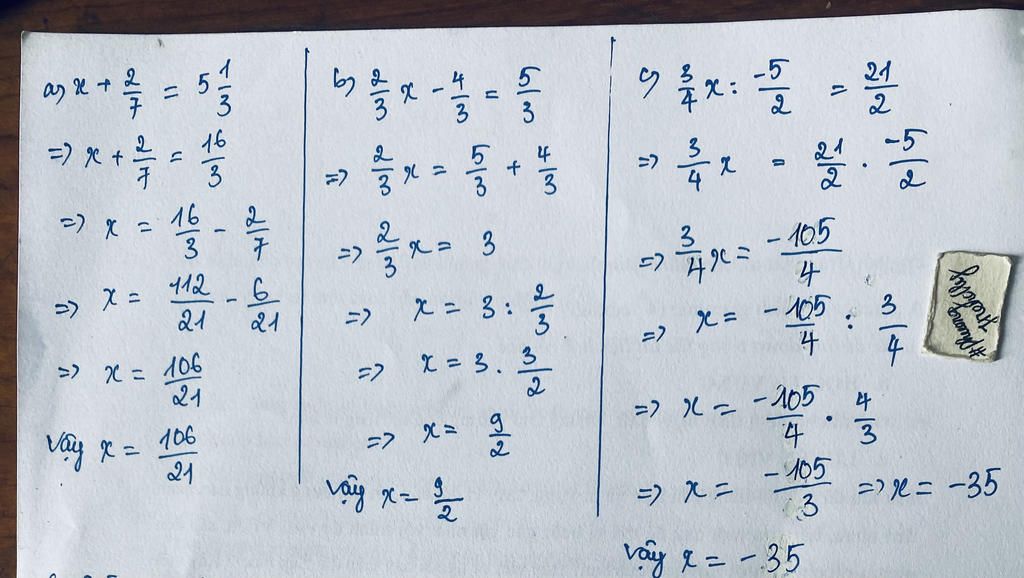 a) x + 2/7 = 5 1/3
=> x + 2/7 = 16/3
=> x = 16/3 - 2/7
=> x = 112/21 - 6/21
=> x = 106/21
Vậy x = 106/21
b) 2/3 x - 4/3 = 5/3
=> 2/3 x = 5/3 + 4/3
=> 2/3 x = 3
=> x = 3 : 2/3
=> x = 3 . 3/2
=> x = 9/2
Vậy x = 9/2
c) 3/4 x : -5/2 = 21/2
=> 3/4 x = 21/2 . -5/2
=> 3/4 x = -105/4
=> x = -105/4 : 3/4
=> x = -105/4 . 4/3
=> x = -105/3 => x = -35
Vậy x = -35